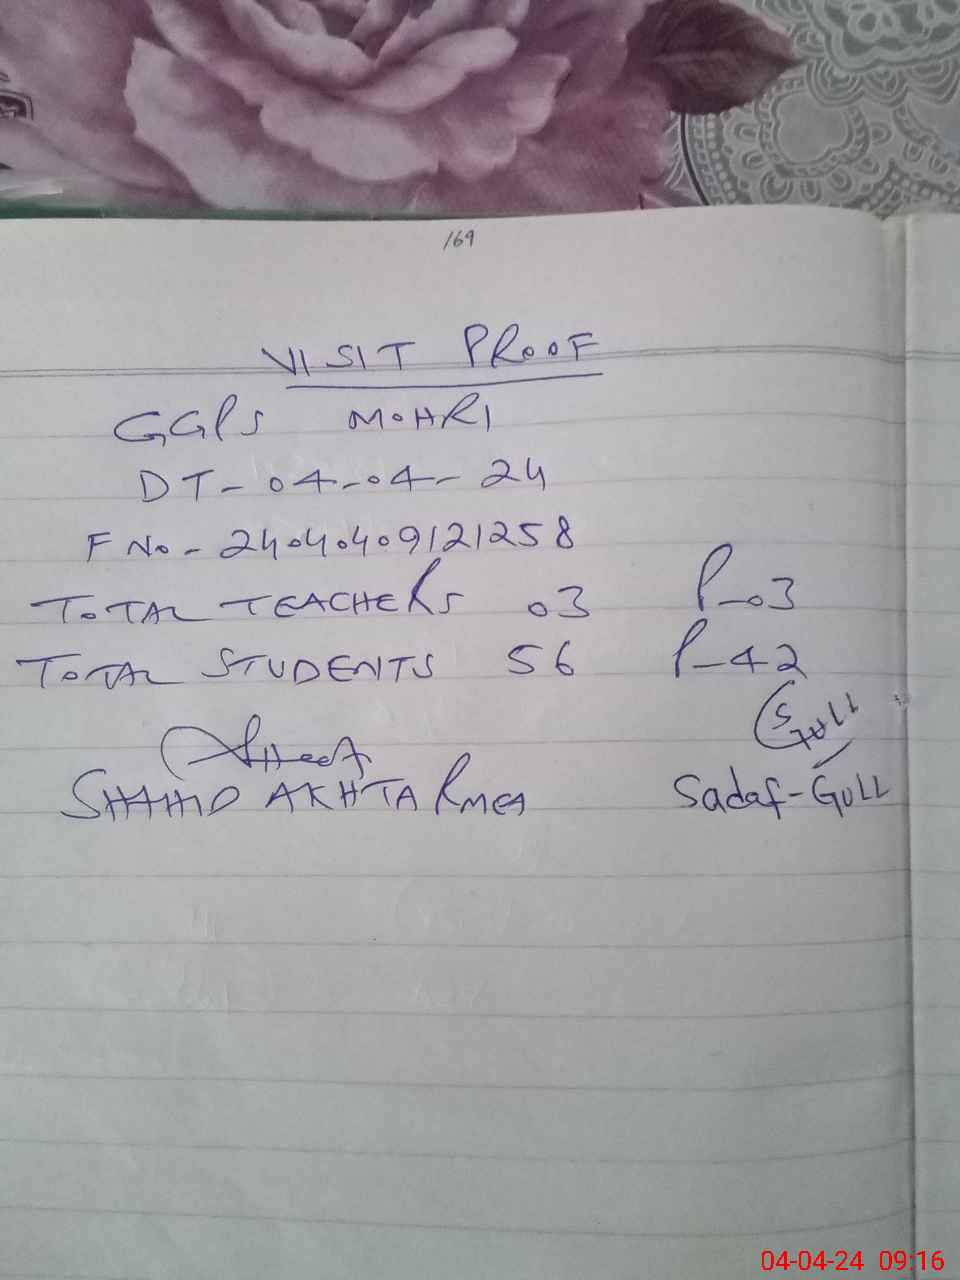 169
VISIT PROOF
GGPS MOHRI
DT- 04-04-24
F No- 24040409121258
TOTAL TEACHERS 03 P-03
TOTAL STUDENTS 56 P-42
S Gull
SHAHID AKHTAR MEA Sadaf-GULL
04-04-24 09:16